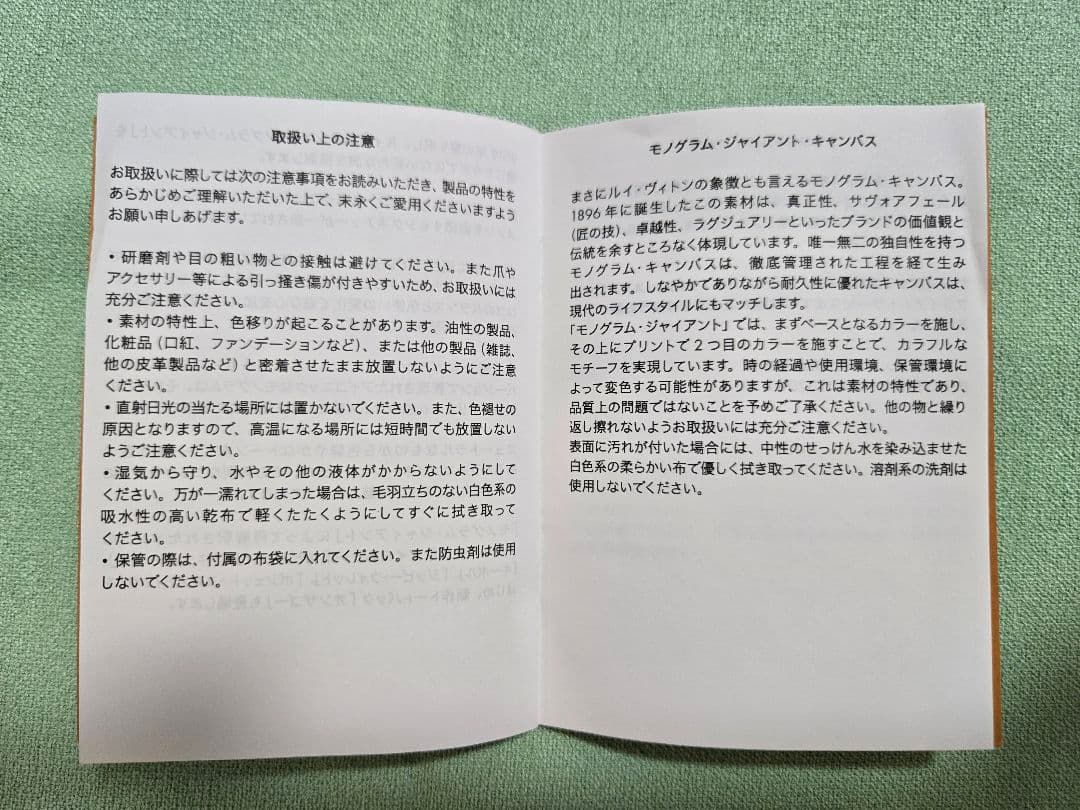 取扱い上の注意
お取扱いに際しては次の注意事項をお読みいただき、製品の特性を
あらかじめご理解いただいた上で、末永くご愛用くださいますよう
お願い申しあげます。
• 研磨剤や目の粗い物との接触は避けてください。また爪や
アクセサリー等による引っ掻き傷が付きやすいため、お取扱いには
充分ご注意ください。
• 素材の特性上、色移りが起こることがあります。油性の製品、
化粧品（口紅、ファンデーションなど）、または他の製品（雑誌、
他の皮革製品など）と密着させたまま放置しないようにご注意
ください。
• 直射日光の当たる場所には置かないでください。また、色褪せの
原因となりますので、高温になる場所には短時間でも放置しない
ようご注意ください。
• 湿気から守り、水やその他の液体がかからないようにして
ください。万が一濡れてしまった場合は、毛羽立ちのない白色系の
吸水性の高い乾布で軽くたたくようにしてすぐに拭き取って
ください。
• 保管の際は、付属の布袋に入れてください。また防虫剤は使用
しないでください。
モノグラム・ジャイアント・キャンバス
まさにルイ・ヴィトンの象徴とも言えるモノグラム・キャンバス。
1896年に誕生したこの素材は、真正性、サヴォアフェール
（匠の技）、卓越性、ラグジュアリーといったブランドの価値観と
伝統を余すところなく体現しています。唯一無二の独自性を持つ
モノグラム・キャンバスは、徹底管理された工程を経て生み
出されます。しなやかでありながら耐久性に優れたキャンバスは、
現代のライフスタイルにもマッチします。
「モノグラム・ジャイアント」では、まずベースとなるカラーを施し、
その上にプリントで２つ目のカラーを施すことで、カラフルな
モチーフを実現しています。時の経過や使用環境、保管環境に
よって変色する可能性がありますが、これは素材の特性であり、
品質上の問題ではないことを予めご了承ください。他の物と繰り
返し擦れないようお取扱いには充分ご注意ください。
表面に汚れが付いた場合には、中性のせっけん水を染み込ませた
白色系の柔らかい布で優しく拭き取ってください。溶剤系の洗剤は
使用しないでください。